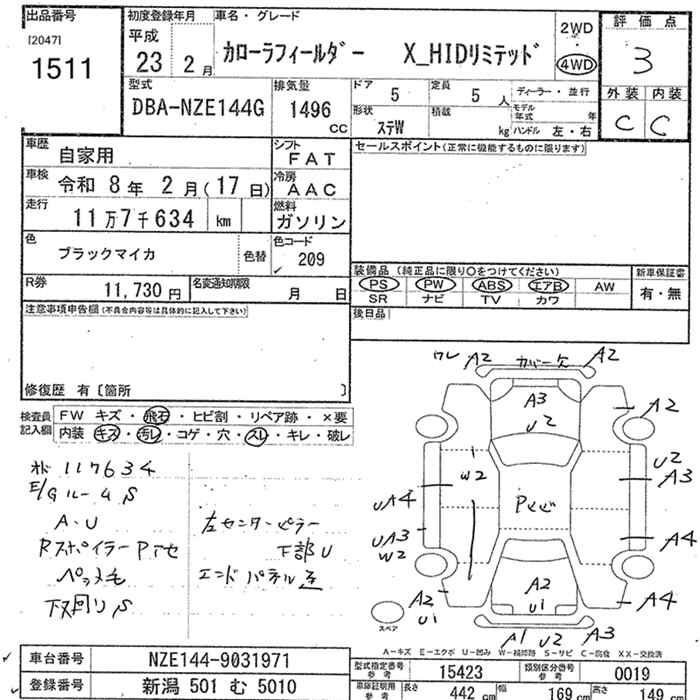 出品番号
[2047]
1511
初度登録年月
平成
23 2月
車名・グレード
カローラフィールダー X_HIDリミテッド
2WD
4WD
評価点
3
外装 内装
C C
型式
DBA-NZE144G
排気量
1496
CC
ドア
5
定員
5人
形状
ステW
積載
kg
ディーラー・並行
モデル年式 年
ハンドル 左・右
車歴
自家用
シフト
FAT
車検 令和 8年 2月(17日)
冷房
AAC
走行
11万7千634 km
燃料
ガソリン
色
ブラックマイカ
色替
色コード
209
R券
11,730円
名変通知期限
月 日
セールスポイント(正常に機能するものに限ります)
装備品 (純正品に限り○をつけてください)
PS PW ABS エアB AW
SR ナビ TV カワ
新車保証書
有・無
後日品
注意事項申告欄(不具合内容等は具体的に記入して下さい)
修復歴 有〔箇所 〕
検査員記入欄
FW キズ・飛石・ヒビ割・リペア跡・×要
内装 キズ・汚レ・コゲ・穴・スレ・キレ・破レ
117634
E/GルームS
A・U
Rスポイラー
ペット毛
下回りS
左センターピラー
下部U
エンドパネル
ワレ A2 カバー欠 A2
A3
U2
A2
U2
A3
W2
UA4
UA3
W2
A4
A2
U1
A2
U1
A4
スペア
A1 U2 A3
A-キズ E-エクボ U-凹み W-補修跡 S-サビ C-腐食 XX-交換済
車台番号 NZE144-9031971
登録番号 新潟 501 む 5010
型式指定番号
参考
15423
類別区分番号
参考
0019
車庫証明用
参考
長さ 442 cm
幅 169 cm
高さ 149 cm